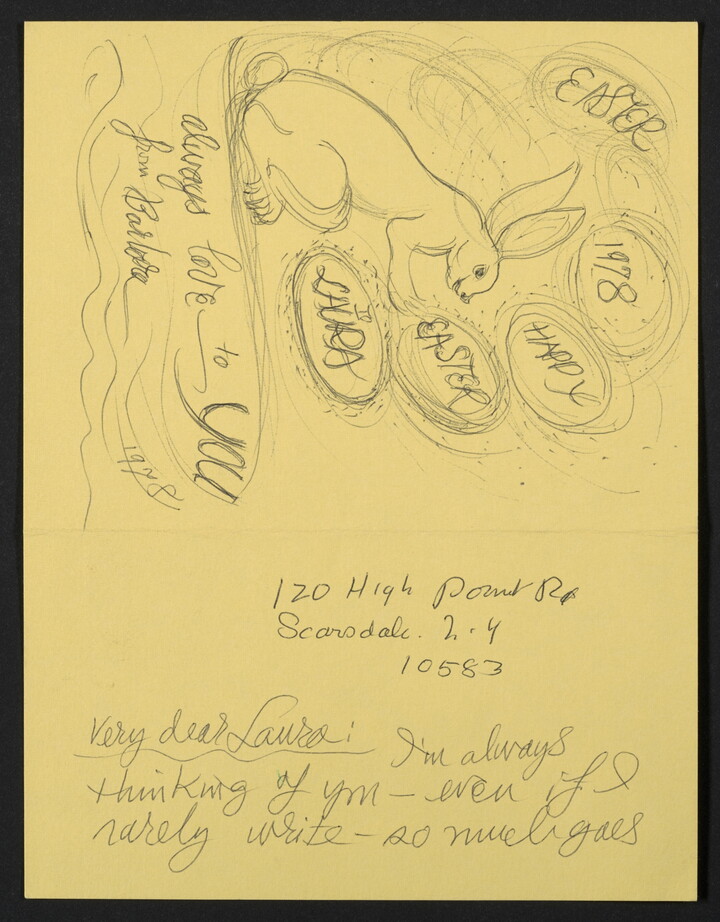 EASTER
1978
HAPPY
EASTER
TO
LAURA
always love to YOU
from Barbara
1978
120 High Point Rd
Scarsdale. N.Y
10583
Very dear Laura: I'm always
thinking of you – even if I
rarely write – so much goes